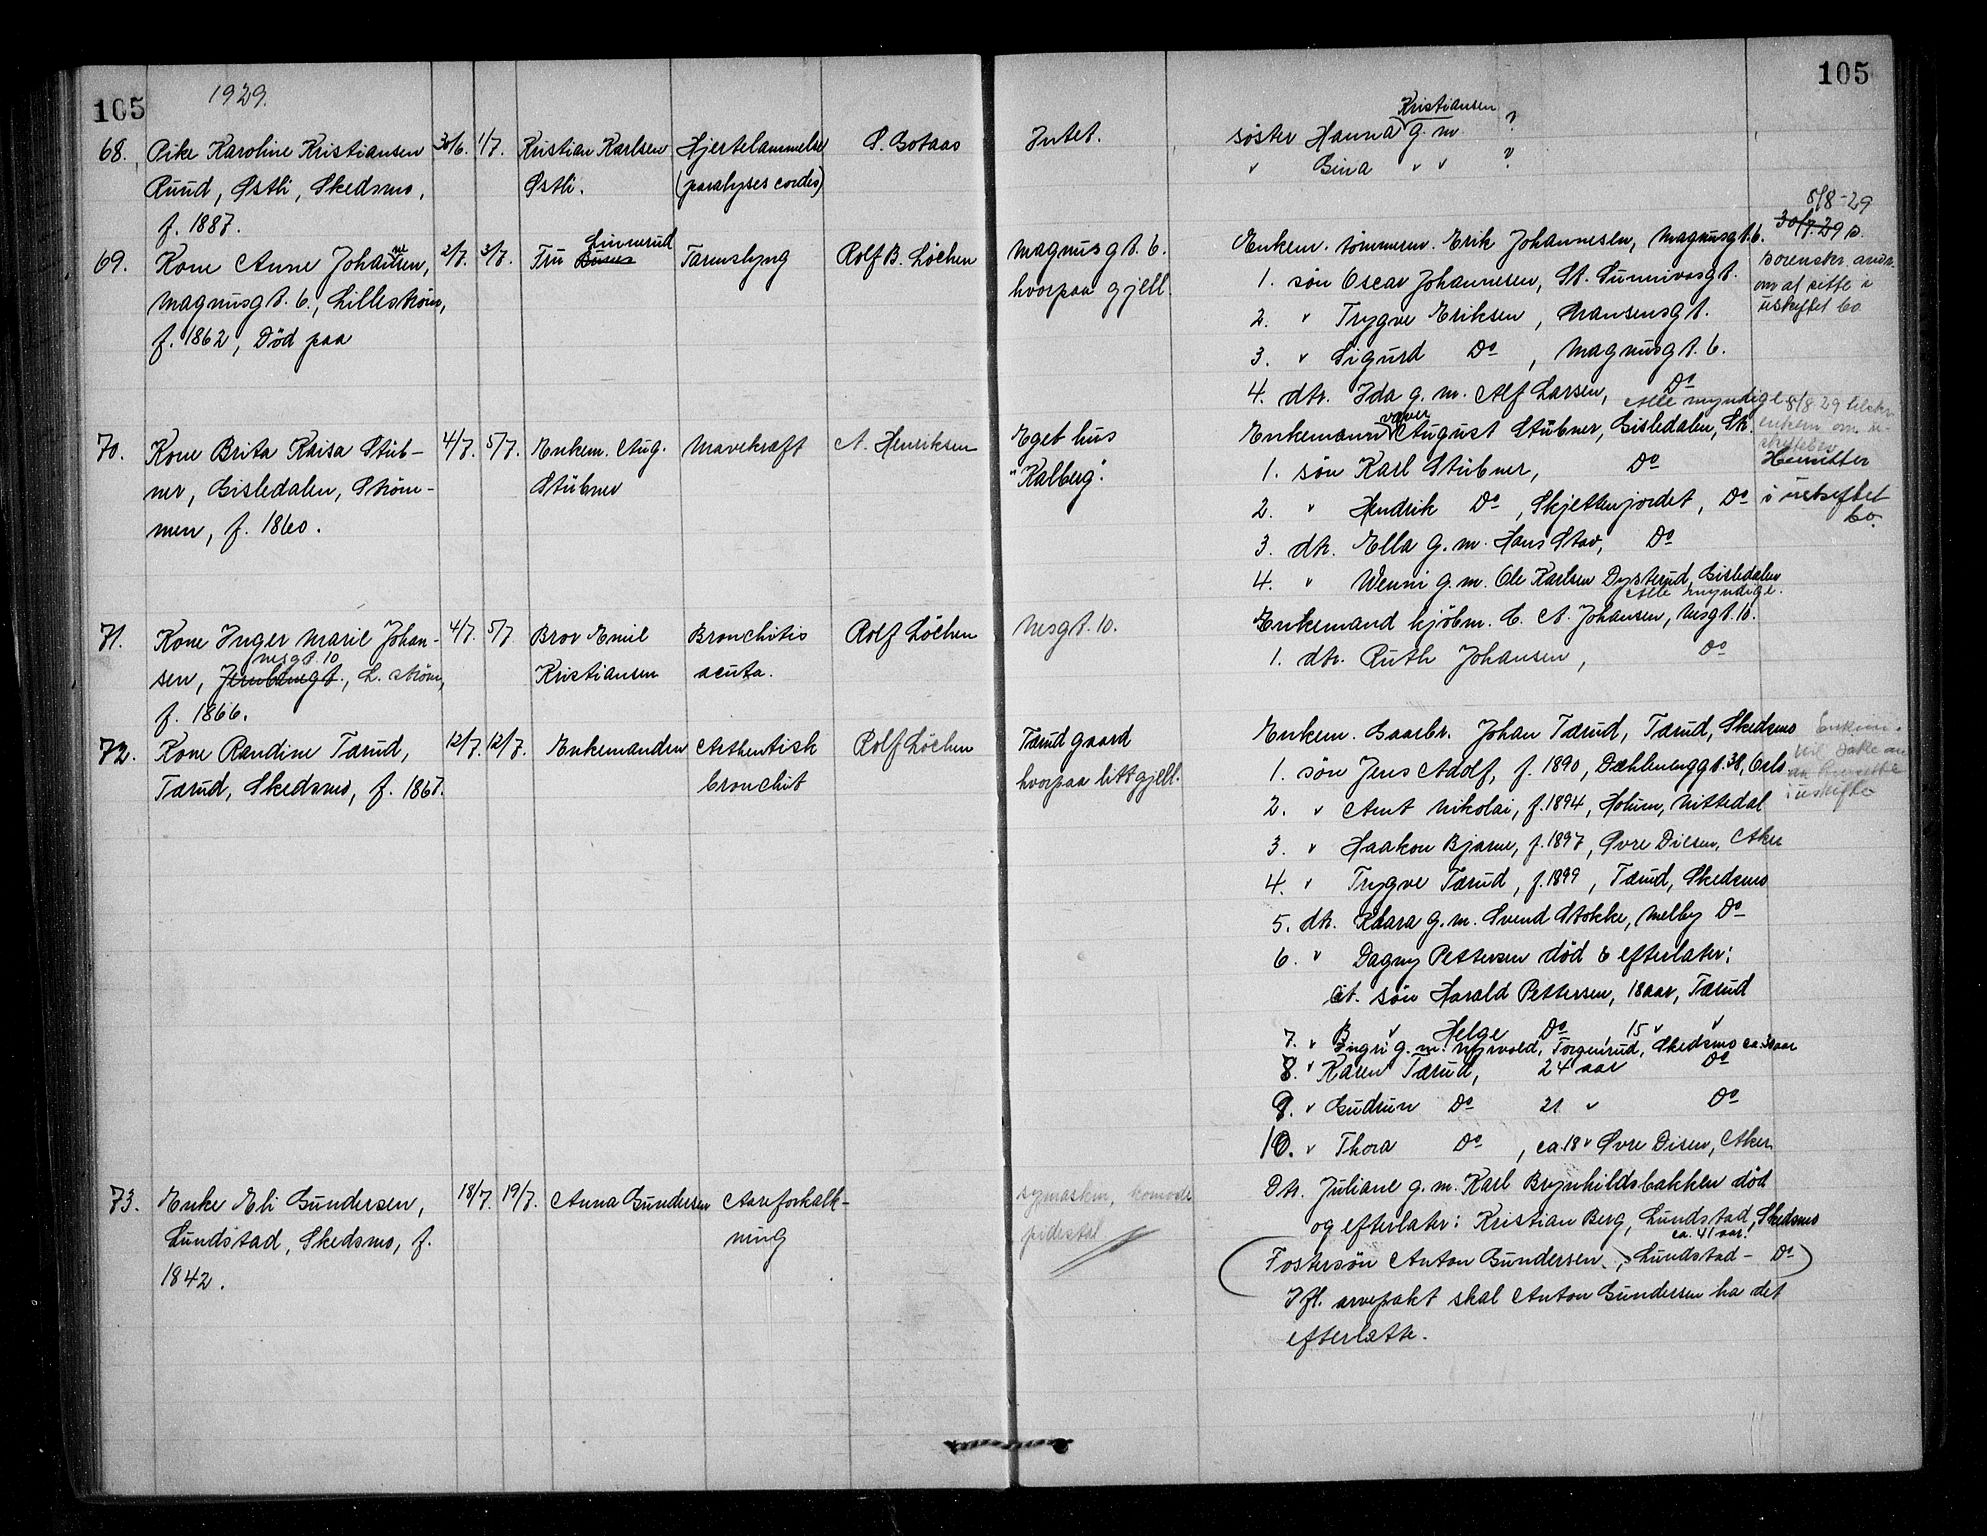 105
1929.
105
68. Pike Karoline Kristiansen 30/6. 1/7. Kristian Karlsen Hjertelammelse O. Botaas Intet. søster Hanna Kristiansen g. m. ?
Ruud, Østli, Skedsmo, Østli. (paralyses cordis) " Gina " " ?
f. 1887.
69. Kone Anne Johannesen, 2/7. 3/7. Fru Linnerud Tarmslyng Rolf B. Løchen Magnusgt. 6. Enkem. tømmerm. Erik Johannesen, Magnusgt. 6.
Magnusgt. 6., Lillestrøm, hvorpaa gjeld. 1. søn Oscar Johannesen, St. Sunnivasgt.
f. 1862, Død paa 2. " Trygve Eriksen, Nansensgt.
3. " Sigurd Do, Magnusgt. 6.
4. dtr. Ida g. m. Alf Larsen, Do
Alle myndige
5/8-29
30/7.29 s.
sorenskr. andr.
om at sitte i
uskiftet bo
70. Kone Brita Kaisa Stüb- 4/7. 5/7. Enkem. Aug. Mavekræft A. Henriksen Eget hus Enkemand væver August Stübner, Gisledalen, Str.
ner, Gisledalen, Strøm- Stübner "Kalberg". 1. søn Karl Stübner, Do
men, f. 1860. 2. " Hendrik Do, Skjettenjordet, Do
3. dtr. Ella g. m. Hans Stav, Do
4. " Wenni g. m. Ole Karlsen Dysterud, Gisledalen
Alle myndige.
5/8 29
enkem om u-
Hensitter
i uskiftet
bo.
71. Kone Inger Marie Johan- 4/7. 5/7. Bror Emil Bronchitis Rolf Løchen Nesgt. 10. Enkemand kjøbm. C. A. Johansen, Nesgt. 10.
sen, Jernbanegt. Nesgt. 10, L. strøm, Kristiansen acuta. 1. dtr. Ruth Johansen, Do
f. 1866.
72. Kone Randine Tærud, 12/7. 12/7. Enkemanden Asthentisk Rolf Løchen Tærud gaard Enkem. Gaarbr. Johan Tærud, Tærud, Skedsmo
Tærud, Skedsmo, f. 1867. bronchit hvorpaa litt gjeld. 1. søn Jens Adolf, f. 1890, Dæhlenenggt. 38, Oslo
2. " Amt Nikolai, f. 1894, Holum, Nittedal
3. " Haakon Bjarne, f. 1897, Øvre Disen, Aker
4. " Trygve Tærud, f. 1899, Tærud, Skedsmo
5. dtr. Klara g. m. Svend Stokke, Melby Do
6. " Dagny Pettersen død & efterlater:
a. søn Harald Pettersen, 18 aar, Tærud
B " Helge Do 15 " "
7. " Ingri g. m. Nyvold, Torgenrud, Skedsmo ca. 30 aar
8. " Karen Tærud, 24 aar Do
9. " Gudrun Do 21 " Do
10. " Thora Do, ca. 18 " Øvre Disen, Aker
Enkem.
i uskifte
73. Enke Eli Gundersen, 18/7. 19/7. Anna Gundersen Aareforkalk- symaskin, komode Dtr. Juliane g. m. Karl Brynhildsbakken død
Lundstad, Skedsmo, f. ning pidestal og efterlater: Kristian Berg, Lundstad, Skedsmo
1842. ca. 41 aar.
(Fostersøn Anton Gundersen, Lundstad - Do)
Ifl. arvepakt skal Anton Gundersen ha det
efterlatte.